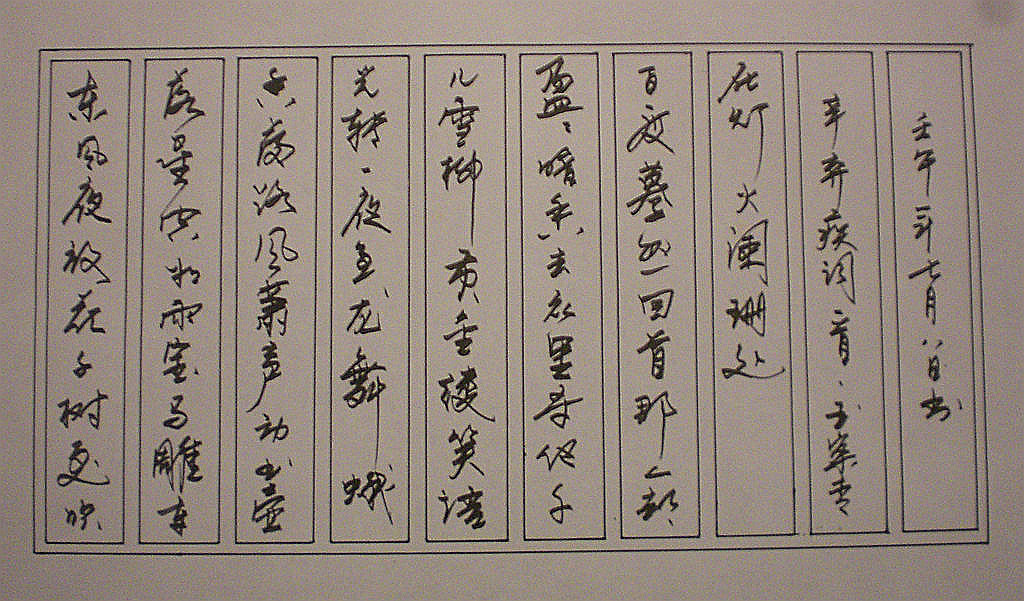 东风夜放花千树更吹
落星如雨宝马雕车
香满路风萧声动玉壶
光转一夜鱼龙舞蛾
儿雪柳黄金缕笑语
盈盈暗香去众里寻他千
百度蓦然回首那人却
在灯火阑珊处
辛弃疾词一首·玉案青
壬午年七月八日书